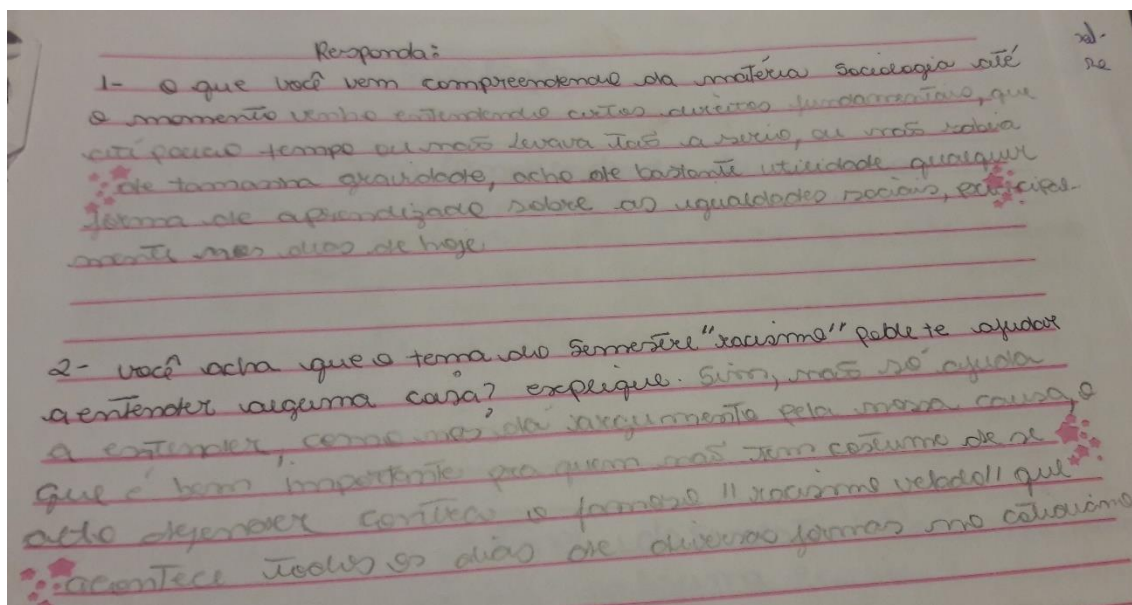 Responda:
1- O que você vem compreendendo da matéria sociologia até
o momento venho entendendo certos direitos fundamentais, que
até pouco tempo ou não levava tão a serio, ou não sabia
de tamanha gravidade, acho de bastante utilidade qualquer
forma de aprendizado sobre as igualdades sociais, principal-
mente nos dias de hoje
2- você acha que o tema do semestre "racismo" pode te ajudar
a entender alguma coisa? explique. Sim, não só ajuda
a entender, como nos dá argumento pela nossa causa, o
que é bem importante pra quem não tem costume de se
auto defender contra o famoso "racismo velado" que
acontece todos os dias de diversas formas no cotidiano